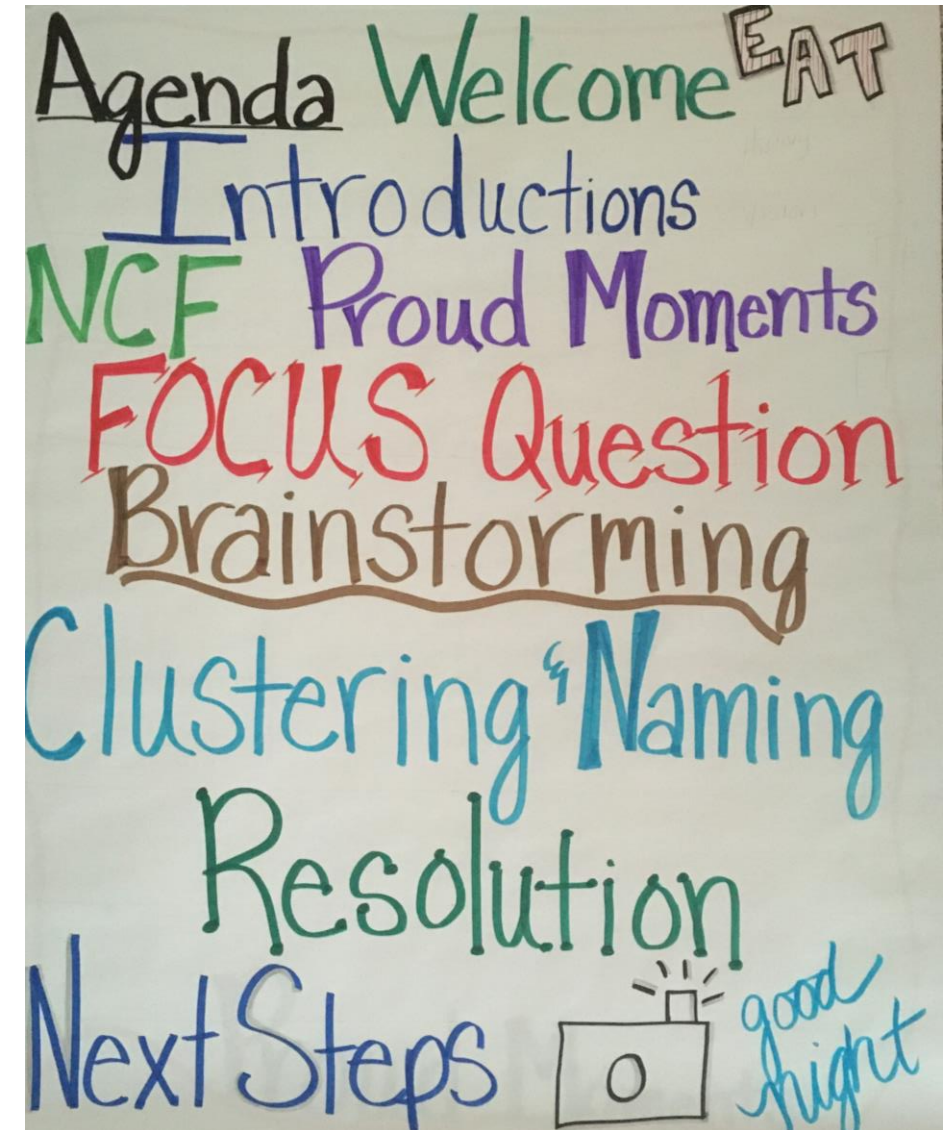 Agenda Welcome EAT
Introductions
NCF Proud Moments
FOCUS Question
Brainstorming
Clustering & Naming
Resolution
Next Steps good night